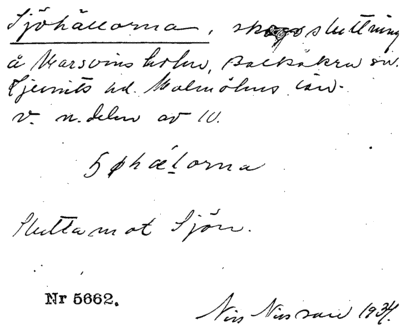 Sjöhällorna, skogssluttning
å Marsvinsholm, Balkåkra sn.
Ljunits hd. Malmöhus län.
v. n. delen av 10.
Slutta mot Sjön.
Nr 5662.
Nils Nilsson 1934.